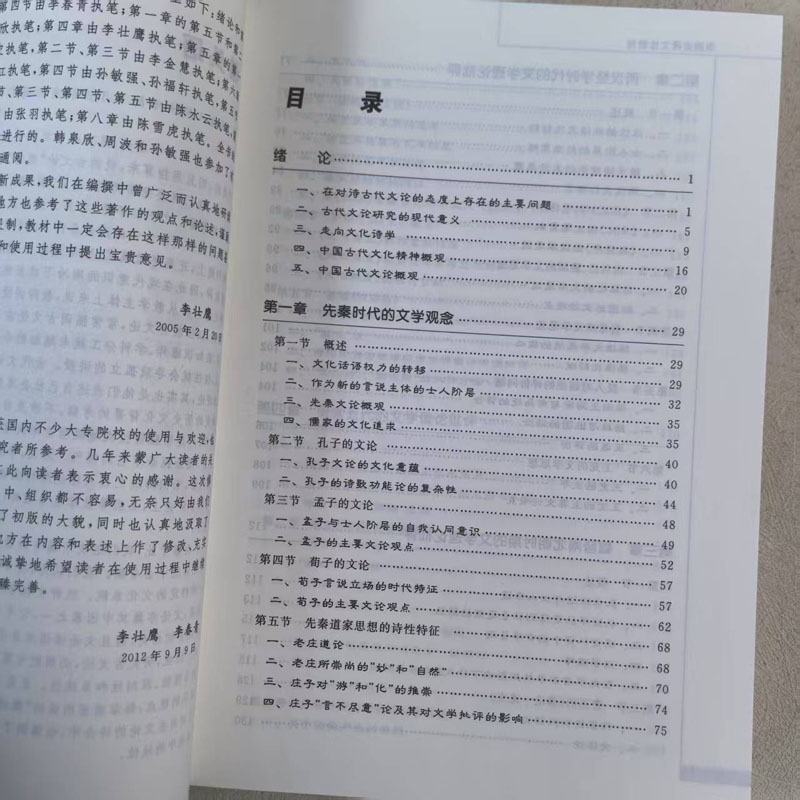 第四节由李春青执笔；第一章的第五节和第二
执笔；第四章由李壮鹰执笔；第五章的第
执笔，第二节、第三节由李金慧执笔；第六
执笔；第三节由孙敏强、孙福轩执笔，第五
第四节、第五节由陈水云执笔；第
由张羽执笔；第八章由陈雪虎执笔。全书
进行的。韩泉欣、周波和孙敏强也参加了
通阅。
新成果，我们在编撰中曾广泛而认真地研
地方也参考了这些著作的观点和论述，谨
制，教材中一定会存在这样那样的问题
和使用过程中提出宝贵意见。
李壮鹰
2005年2月20日
国内不少大专院校的使用与欢迎，
究者所参考。几年来蒙广大读者的
此向读者表示衷心的感谢。这次
中、组织都不容易，无奈只好由我们
了初版的大貌，同时也认真地汲取了
地方在内容和表述上作了修改、充实
诚挚地希望读者在使用过程中继续
臻完善。
李壮鹰 李春青
2012年9月9日
目 录
绪 论 1
一、在对待古代文论的态度上存在的主要问题 1
二、古代文论研究的现代意义 5
三、走向文化诗学 9
四、中国古代文化精神概观 16
五、中国古代文论概观 20
第一章 先秦时代的文学观念 29
第一节 概述 29
一、文化话语权力的转移 29
二、作为新的言说主体的士人阶层 32
三、先秦文论概观 35
四、儒家的文化追求 35
第二节 孔子的文论 40
一、孔子文论的文化意蕴 40
二、孔子的诗教功能论的复杂性 44
第三节 孟子的文论 48
一、孟子与士人阶层的自我认同意识 49
二、孟子的主要文论观点 52
第四节 荀子的文论 57
一、荀子言说立场的时代特征 57
二、荀子的主要文论观点 62
第五节 先秦道家思想的诗性特征 68
一、老庄道论 68
二、老庄所崇尚的“妙”和“自然” 70
三、庄子对“游”和“化”的推崇 74
四、庄子“言不尽意”论及其对文学批评的影响 75